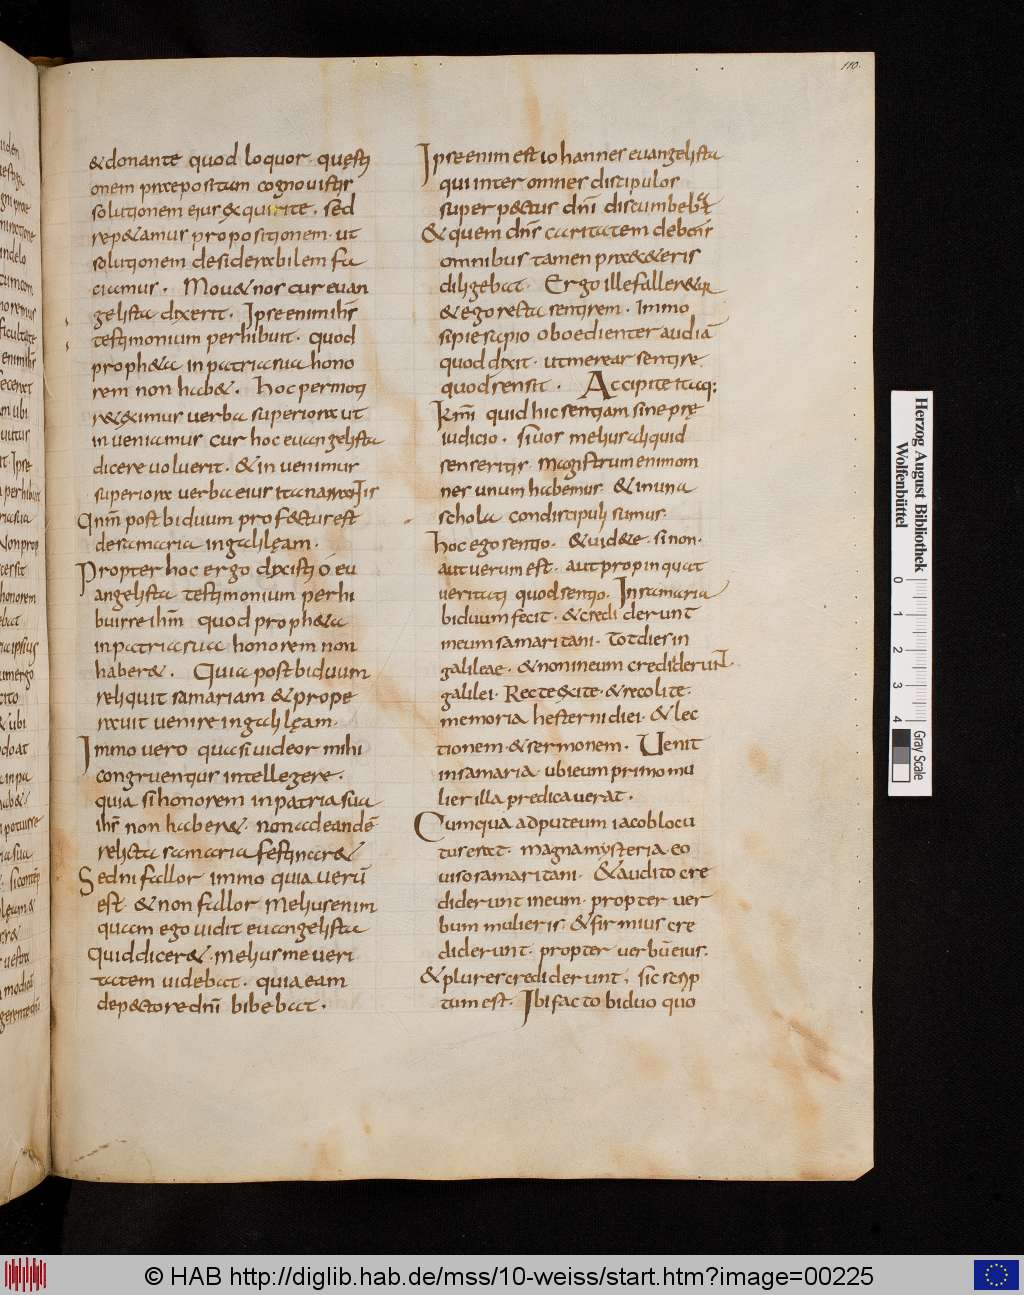 110.
& donante quod loquor. quęsti
onem praepositam cognouistis
solutionem eius & quirite. sed
rep&amus propositionem. ut
solutionem desiderabilem fa
ciamus. Mou& nos cur euan
gelista dixerit. Ipse enim ihs
testimonium perhibuit. quod
proph&a in patria sua hono
rem non hab&. Hoc permoti
r&eximus uerba superiora ut
inueniamus cur hoc euangelista
dicere uoluerit. & inuenimus
superiora uerba eius ita narrantis
Qnm post biduum profectus est
de samaria in galilęam.
Propter hoc ergo dixisti o eu
angelista testimonium perhi
buisse ihm quod proph&a
in patria sua honorem non
haber&. Quia post biduum
reliquit samariam & prope
rauit uenire in galilęam.
Immo uero quasi uideor mihi
congruentius intellegere.
quia si honorem in patria sua
ihs non haber&. non ad eandē
relicta samaria festinar&
Sed ni fallor immo quia uerū
est. & non fallor Melius enim
quam ego uidit euangelista
Quid dicer&. melius me ueri
tatem uidebat. quia eam
de pectore dni bibebat.
Ipse enim est iohannes euangelista
qui inter omnes discipulos
super p&tus dni discumbebat
& quem dns caritatem debens
omnibus tamen prae c&eris
diligebat. Ergo ille faller&ur
& ego recta sentirem. Immo
si pie sapio oboedienter audiā
quod dixit. ut merear sentire
quod sensit. Accipite itaq;
kmi quid hic sentiam sine prę
iudicio. si uos melius aliquid
senseritis. Magistrum enim om
nes unum habemus. & in una
schola condiscipuli sumus.
Hoc ego sentio. & uid&e. si non.
aut uerum est. aut propinquat
ueritati quod sentio. In samaria
biduum fecit. & crediderunt
in eum samaritani. Tot dies in
galileae. & non in eum crediderunt.
galilei. Recte exite. & recolite.
memoria hesterni diei. & lec
tionem. & sermonem. Uenit
in samaria. ubi eum primo mu
lier illa predicauerat.
Cum qua ad puteum iacob locu
tus erat. magna mysteria. eo
uiso samaritani. & audito cre
diderunt in eum. propter uer
bum mulieris. & firmius cre
diderunt. propter uerbū eius.
& plures crediderunt. sic scrip
tum est. Ibi facto biduo quo
Herzog August Bibliothek
Wolfenbüttel
0 1 2 3 4
Gray Scale
© HAB http://diglib.hab.de/mss/10-weiss/start.htm?image=00225